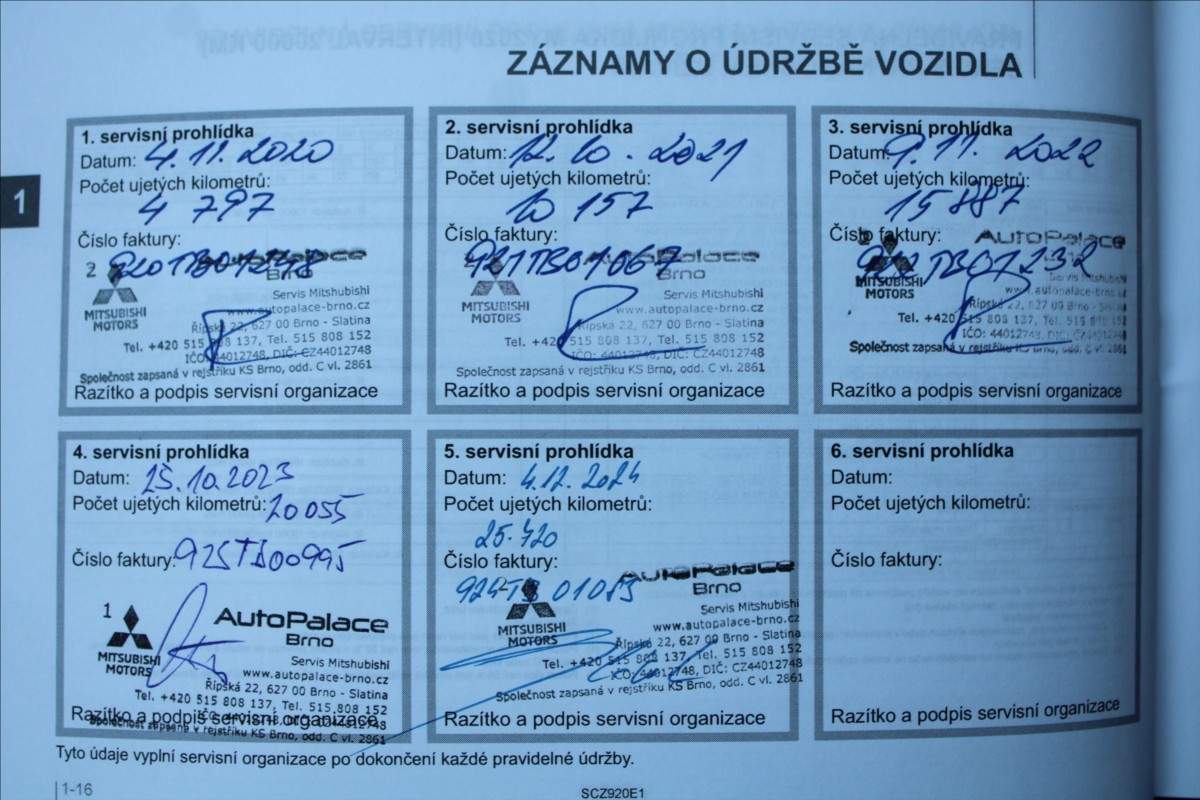 ZÁZNAMY O ÚDRŽBĚ VOZIDLA
1
1. servisní prohlídka
Datum: 4.11.2020
Počet ujetých kilometrů:
4 797
Číslo faktury:
2
AutoPalace
Brno
MITSUBISHI
MOTORS
Servis Mitshubishi
www.autopalace-brno.cz
Řípská 22, 627 00 Brno - Slatina
Tel. +420 515 808 137, Tel. 515 808 152
IČO: 44012748, DIČ: CZ44012748
Společnost zapsaná v rejstříku KS Brno, odd. C vl. 2861
Razítko a podpis servisní organizace
2. servisní prohlídka
Datum: 12.10.2021
Počet ujetých kilometrů:
10 157
Číslo faktury:
921TB01067
AutoPalace
Brno
MITSUBISHI
MOTORS
Servis Mitshubishi
www.autopalace-brno.cz
Řípská 22, 627 00 Brno - Slatina
Tel. +420 515 808 137, Tel. 515 808 152
IČO: 44012748, DIČ: CZ44012748
Společnost zapsaná v rejstříku KS Brno, odd. C vl. 2861
Razítko a podpis servisní organizace
3. servisní prohlídka
Datum: 9.11.2022
Počet ujetých kilometrů:
15 887
Číslo faktury:
922TB01232
AutoPalace
MITSUBISHI
MOTORS
Servis Mitshubishi
www.autopalace-brno.cz
Řípská 22, 627 00 Brno - Slatina
Tel. +420 515 808 137, Tel. 515 808 152
IČO: 44012748, DIČ: CZ44012748
Společnost zapsaná v rejstříku KS Brno, odd. C vl. 2861
Razítko a podpis servisní organizace
4. servisní prohlídka
Datum: 25.10.2023
Počet ujetých kilometrů: 20055
Číslo faktury: 923TB00995
1
AutoPalace
Brno
MITSUBISHI
MOTORS
Servis Mitshubishi
www.autopalace-brno.cz
Řípská 22, 627 00 Brno - Slatina
Tel. +420 515 808 137, Tel. 515 808 152
IČO: 44012748, DIČ: CZ44012748
Společnost zapsaná v rejstříku KS Brno, odd. C vl. 2861
Razítko a podpis servisní organizace
5. servisní prohlídka
Datum: 4.12.2024
Počet ujetých kilometrů:
25.420
Číslo faktury:
924TB01083
AutoPalace
Brno
MITSUBISHI
MOTORS
Servis Mitshubishi
www.autopalace-brno.cz
Řípská 22, 627 00 Brno - Slatina
Tel. +420 515 808 137, Tel. 515 808 152
IČO: 44012748, DIČ: CZ44012748
Společnost zapsaná v rejstříku KS Brno, odd. C vl. 2861
Razítko a podpis servisní organizace
6. servisní prohlídka
Datum:
Počet ujetých kilometrů:
Číslo faktury:
Razítko a podpis servisní organizace
Tyto údaje vyplní servisní organizace po dokončení každé pravidelné údržby.
1-16
SCZ920E1